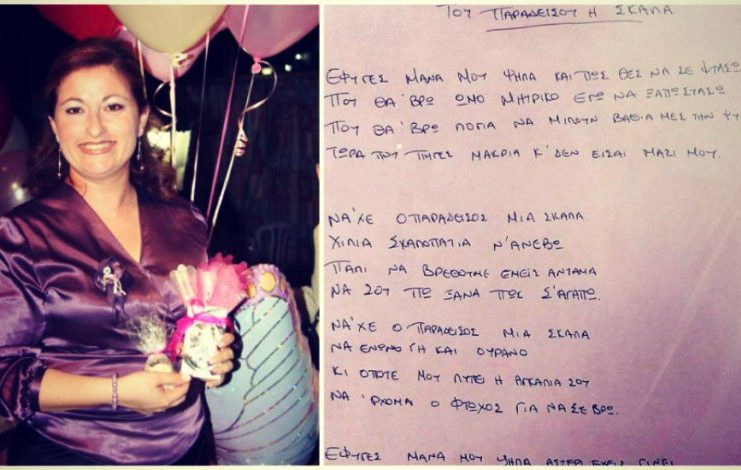 ΤΟΥ ΠΑΡΑΔΕΙΣΟΥ Η ΣΚΑΛΑ
ΕΦΥΓΕΣ ΜΑΝΑ ΜΟΥ ΨΗΛΑ ΚΑΙ ΠΩΣ ΘΕΣ ΝΑ ΣΕ ΦΤΑΣΩ
ΠΟΥ ΘΑ 'ΒΡΩ ΩΜΟ ΜΗΤΡΙΚΟ ΕΓΩ ΝΑ ΞΑΠΟΣΤΑΣΩ
ΠΟΥ ΘΑ 'ΒΡΩ ΛΟΓΙΑ ΝΑ ΜΠΟΥΝ ΒΑΘΙΑ ΜΕΣ ΤΗΝ ΨΥ
ΤΩΡΑ ΠΟΥ ΠΗΓΕΣ ΜΑΚΡΙΑ Κ' ΔΕΝ ΕΙΣΑΙ ΜΑΖΙ ΜΟΥ.
ΝΑ 'ΧΕ Ο ΠΑΡΑΔΕΙΣΟΣ ΜΙΑ ΣΚΑΛΑ
ΧΙΛΙΑ ΣΚΑΛΟΠΑΤΙΑ Ν' ΑΝΕΒΩ
ΠΑΛΙ ΝΑ ΒΡΕΘΟΥΜΕ ΕΜΕΙΣ ΑΝΤΑΜΑ
ΝΑ ΣΟΥ ΠΩ ΞΑΝΑ ΠΩΣ Σ' ΑΓΑΠΩ.
ΝΑ 'ΧΕ Ο ΠΑΡΑΔΕΙΣΟΣ ΜΙΑ ΣΚΑΛΑ
ΝΑ ΕΝΩΝΩ ΓΗ ΚΑΙ ΟΥΡΑΝΟ
ΚΙ ΟΠΟΤΕ ΜΟΥ ΛΥΠΕΙ Η ΑΓΚΑΛΙΑ ΣΟΥ
ΝΑ 'ΡΧΟΜΑ Ο ΦΤΩΧΟΣ ΓΙΑ ΝΑ ΣΕ ΒΡΩ.
ΕΦΥΓΕΣ ΜΑΝΑ ΜΟΥ ΨΗΛΑ ΑΣΤΕΡΙ ΕΧΕΙΣ ΓΙΝΕΙ